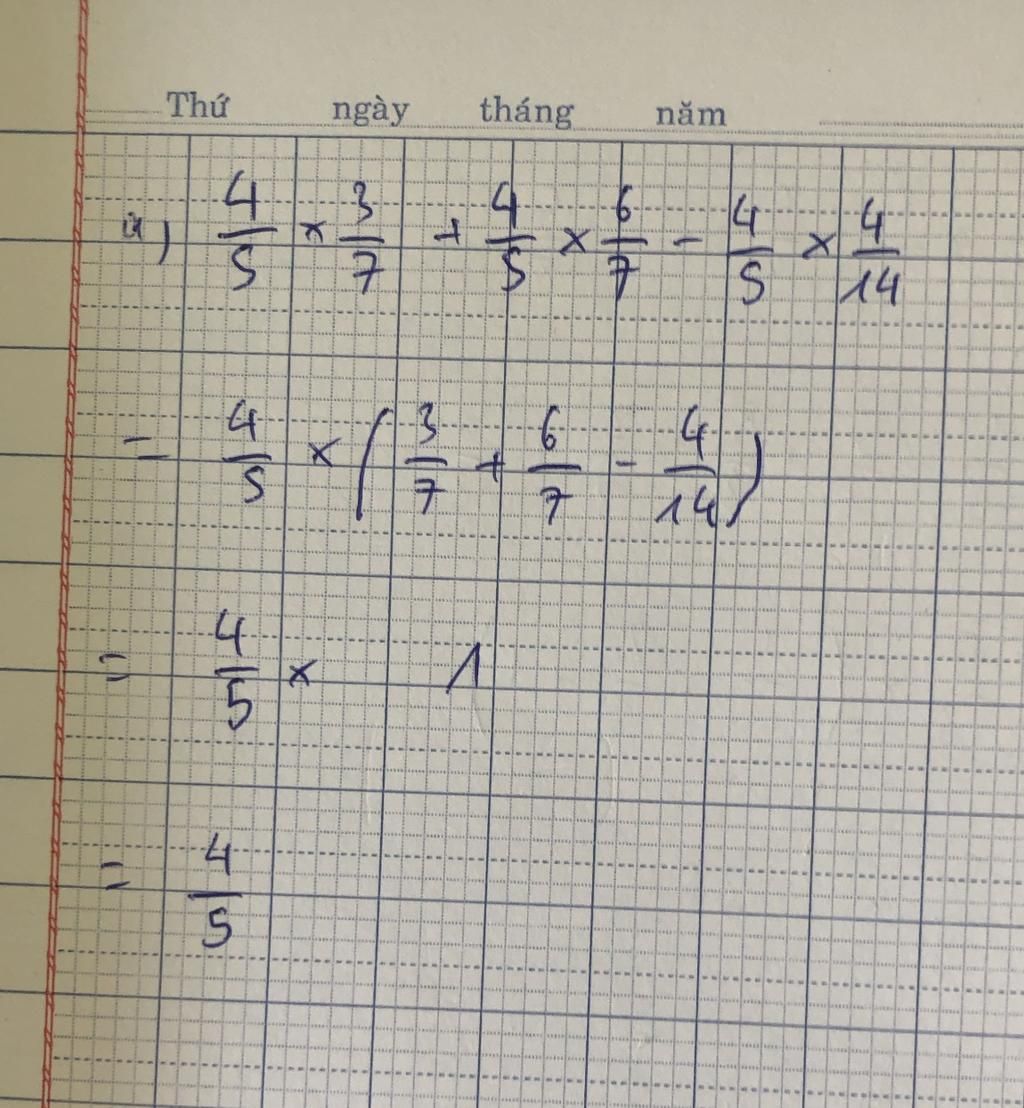 Thứ ngày tháng năm
a) 4/5 × 3/7 + 4/5 × 6/7 - 4/5 × 4/14
= 4/5 × (3/7 + 6/7 - 4/14)
= 4/5 × 1
= 4/5